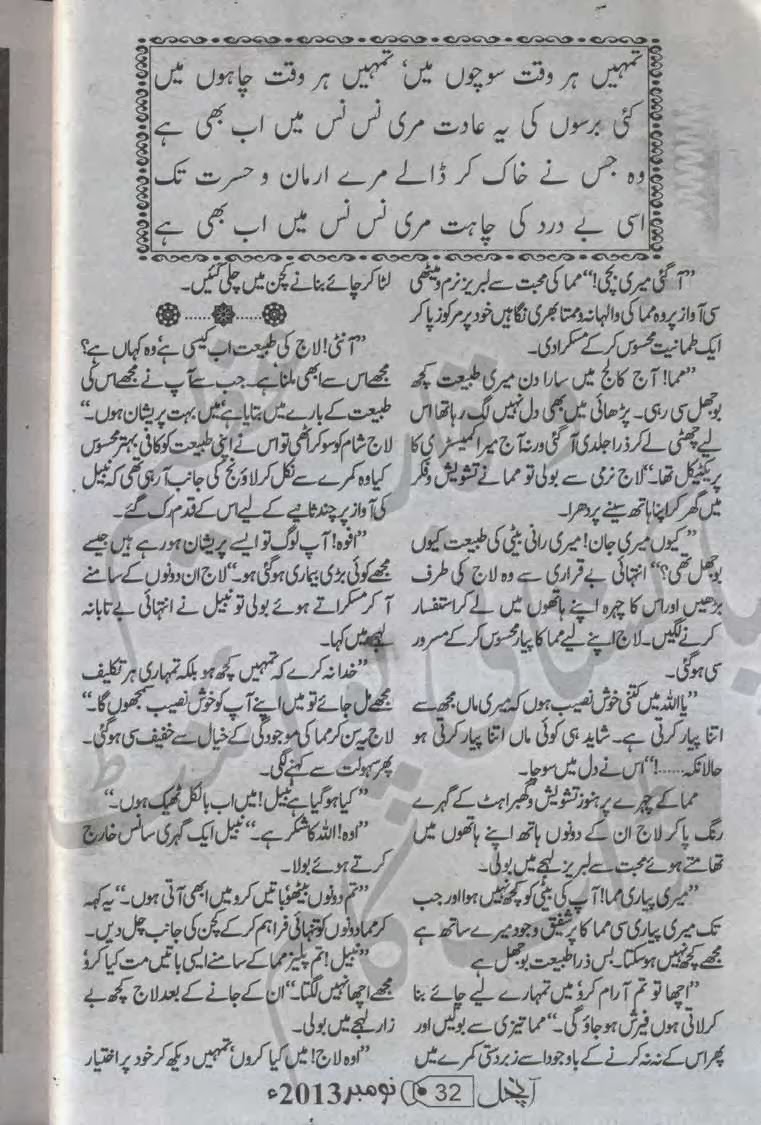 تمہیں ہر وقت سوچوں میں، تمہیں ہر وقت چاہوں میں
کئی برسوں کی یہ عادت مری نس نس میں اب بھی ہے
وہ جس نے خاک کر ڈالے مرے ارمان و حسرت تک
اسی بے درد کی چاہت مری نس نس میں اب بھی ہے
”آ گئی میری بچی!“ مما کی محبت سے لبریز نرم و میٹھی
سی آواز پر وہ مما کی والہانہ و ممتا بھری نگاہیں خود پر مرکوز پا کر
ایک طمانیت محسوس کرکے مسکرا دی۔
”مما! آج کالج میں سارا دن میری طبیعت کچھ
بوجھل سی رہی۔ پڑھائی میں بھی دل نہیں لگ رہا تھا اس
لیے چھٹی لے کر ذرا جلدی آ گئی ورنہ آج میرا کیمسٹری کا
پریکٹیکل تھا۔“ لاج نرمی سے بولی تو مما نے تشویش و فکر
میں گھر کر اپنا ہاتھ سینے پر دھرا۔
”کیوں میری جان! میری رانی بیٹی کی طبیعت کیوں
بوجھل تھی؟“ انتہائی بے قراری سے وہ لاج کی طرف
بڑھیں اور اس کا چہرہ اپنے ہاتھوں میں لے کر استفسار
کرنے لگیں۔ لاج اپنے لیے مما کا پیار محسوس کرکے مسرور
سی ہو گئی۔
”یا اللہ میں کتنی خوش نصیب ہوں کہ میری ماں مجھ سے
اتنا پیار کرتی ہے۔ شاید ہی کوئی ماں اتنا پیار کرتی ہو
حالانکہ......!“ اس نے دل میں سوچا۔
مما کے چہرے پر ہنوز تشویش و گھبراہٹ کے گہرے
رنگ پا کر لاج ان کے دونوں ہاتھ اپنے ہاتھوں میں
تھامتے ہوئے محبت سے لبریز لہجے میں بولی۔
”میری پیاری مما! آپ کی بیٹی کو کچھ نہیں ہوا اور جب
تک میری پیاری سی مما کا پر شفیق وجود میرے ساتھ ہے
مجھے کچھ نہیں ہو سکتا۔ بس ذرا طبیعت بوجھل ہے
”اچھا تو تم آرام کرو، میں تمہارے لیے چائے بنا
کر لاتی ہوں فیرش ہو جاؤ گی۔“ مما تیزی سے بولیں اور
پھر اس کے نہ نہ کرنے کے باوجود اسے زبردستی کمرے میں
لٹا کر چائے بنانے کچن میں چلی گئیں۔
......
”آنٹی! لاج کی طبیعت اب کیسی ہے، وہ کہاں ہے؟
مجھے اس سے ابھی ملنا ہے۔ جب سے آپ نے مجھے اس کی
طبیعت کے بارے میں بتایا ہے میں بہت پریشان ہوں۔“
لاج شام کو سو کر اٹھی تو اس نے اپنی طبیعت کو کافی بہتر محسوس
کیا وہ کمرے سے نکل کر لاؤنج کی جانب آ رہی تھی کہ نبیل
کی آواز پر چند ثانیے کے لیے اس کے قدم رک گئے۔
”افوہ! آپ لوگ تو ایسے پریشان ہو رہے ہیں جیسے
مجھے کوئی بڑی بیماری ہو گئی ہو۔“ لاج ان دونوں کے سامنے
آ کر مسکراتے ہوئے بولی تو نبیل نے انتہائی بے تابانہ
لہجے میں کہا۔
”خدا نہ کرے کہ تمہیں کچھ ہو بلکہ تمہاری ہر تکلیف
مجھے مل جائے تو میں اپنے آپ کو خوش نصیب سمجھوں گا۔“
لاج یہ سن کر مما کی موجودگی کے خیال سے خفیف سی ہو گئی۔
پھر سہولت سے کہنے لگی۔
”کیا ہو گیا ہے نبیل! میں اب بالکل ٹھیک ہوں۔“
”اوہ! اللہ کا شکر ہے۔“ نبیل ایک گہری سانس خارج
کرتے ہوئے بولا۔
”تم دونوں بیٹھو، باتیں کرو میں ابھی آتی ہوں۔“ یہ کہہ
کر مما دونوں کو تنہائی فراہم کرکے کچن کی جانب چل دیں۔
”نبیل! تم پلیز مما کے سامنے ایسی باتیں مت کیا کرو،
مجھے اچھا نہیں لگتا۔“ ان کے جانے کے بعد لاج کچھ بے
زار لہجے میں بولی۔
”اوہ لاج! میں کیا کروں، تمہیں دیکھ کر خود پر اختیار
آنچل 32 نومبر 2013ء